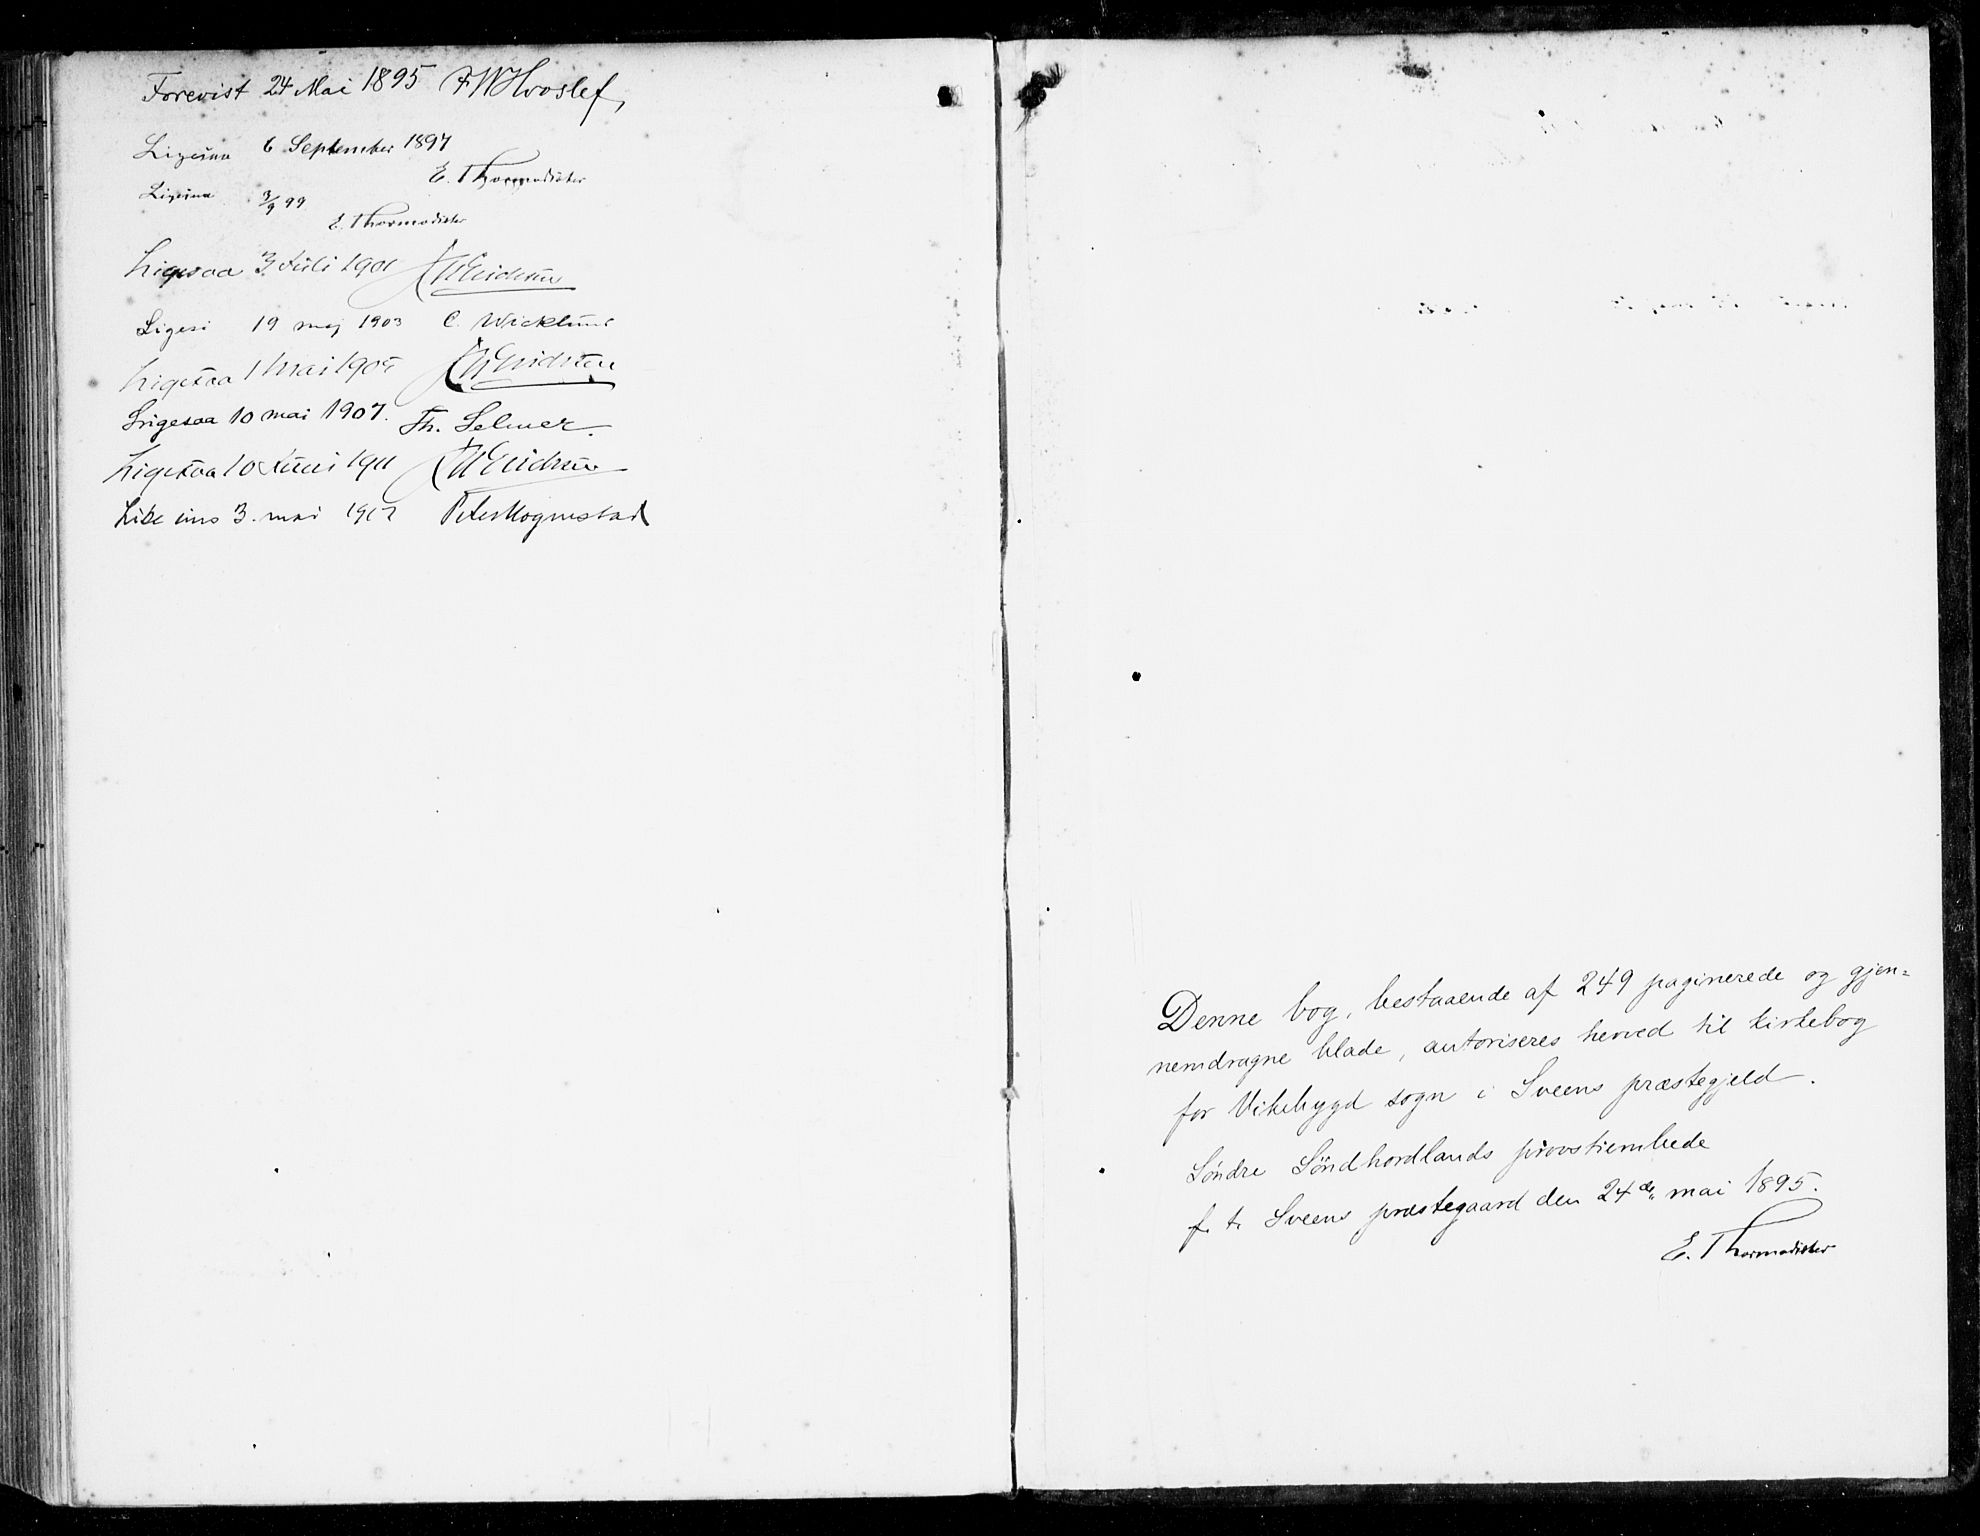 Forevist 24 Mai 1895 F W Hvoslef,
Ligesaa 6 September 1897
E. Thormodsæter
Ligesaa 3/9 99
E. Thormodsæter
Ligesaa 3 Juli 1901
19 maj 1903 C. Wicklund
Ligesaa 1 Mai 1905
Ligesaa 10 mai 1907. Th. Selmer.
Ligesaa 10 Juni 1911
3. mai Peter Hognestad
Denne bog, bestaaende af 249 paginerede og gjen=
nemdragne blade, autoriseres herved til kirkebog
for Vikebygd sogn i Sveens præstegjeld.
Søndre Søndhordlands provstiembede
f. t. Sveens præstegaard den 24de mai 1895.
E. Thormodsæter